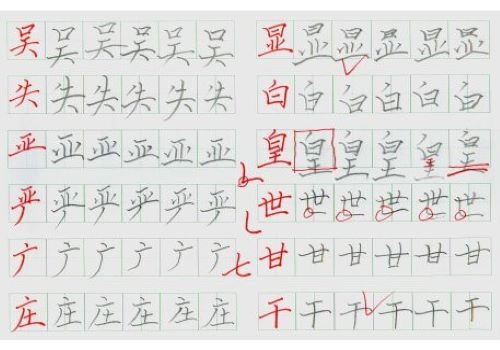 吴吴吴吴吴吴 显显显显显显
失失失失失失 白白白白白白
亚亚亚亚亚亚 皇皇皇皇皇皇
严严严严严严 世世世世世世
广广广广广广 七 甘甘甘甘甘甘
庄庄庄庄庄庄 干干干干干干